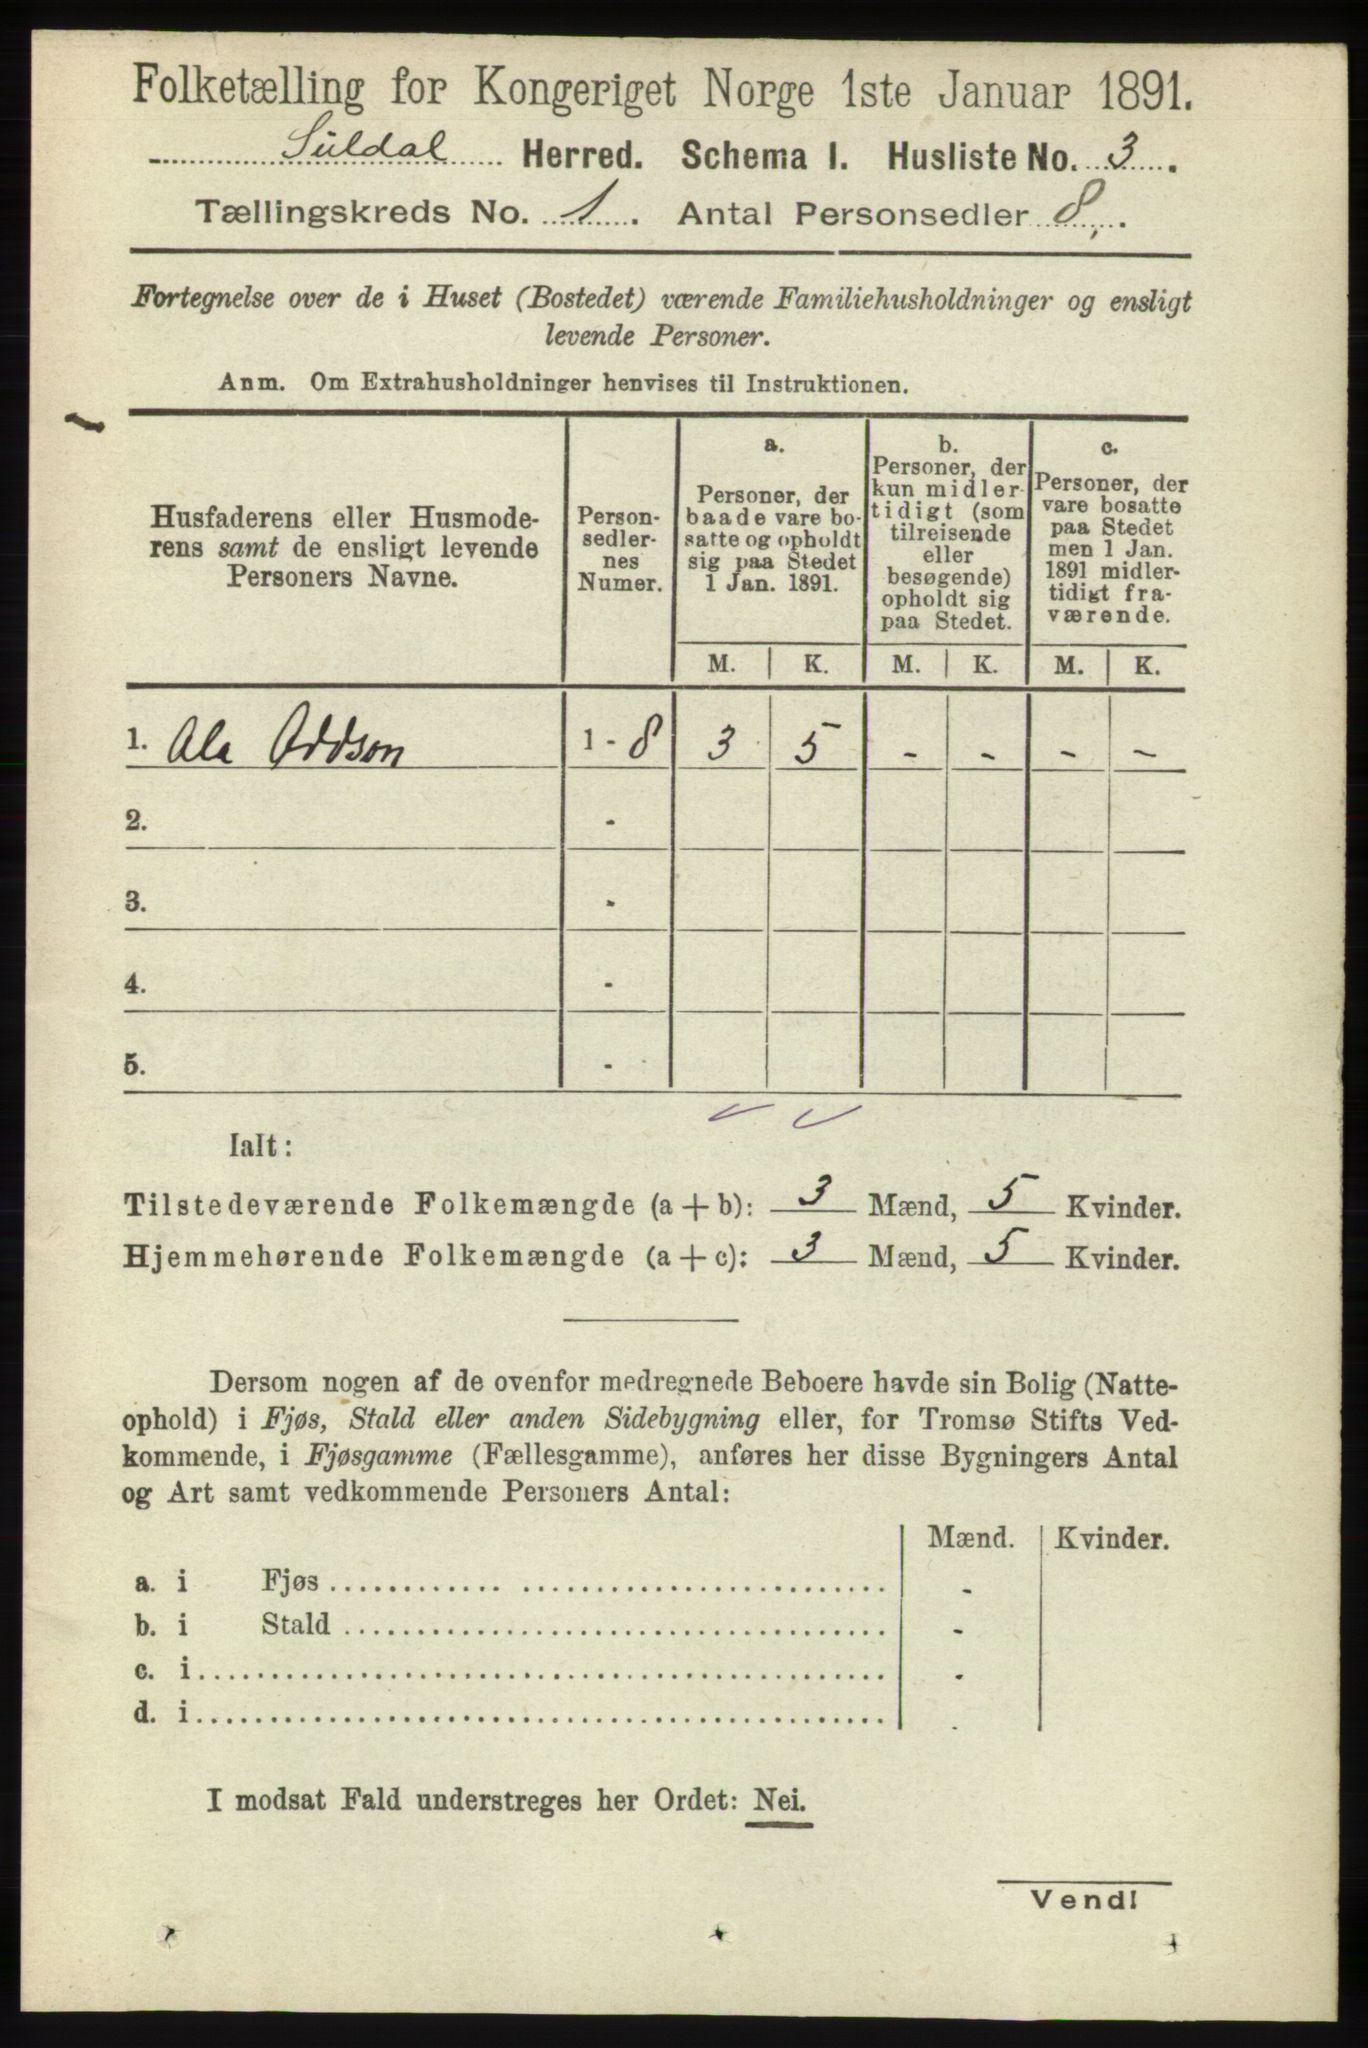 Folketælling for Kongeriget Norge 1ste Januar 1891.
Suldal Herred. Schema I. Husliste No. 3.
Tællingskreds No. 1. Antal Personsedler 8,.
Fortegnelse over de i Huset (Bostedet) værende Familiehusholdninger og ensligt
levende Personer.
Anm. Om Extrahusholdninger henvises til Instruktionen.
Husfaderens eller Husmode-
rens samt de ensligt levende
Personers Navne.
Person-
sedler-
nes
Numer.
a.
Personer, der
baade vare bo-
satte og opholdt
sig paa Stedet
1 Jan. 1891.
b.
Personer, der
kun midler-
tidigt (som
tilreisende
eller
besøgende)
opholdt sig
paa Stedet.
c.
Personer, der
vare bosatte
paa Stedet
men 1 Jan.
1891 midler-
tidigt fra-
værende.
M. K. M. K. M. K.
1. Ola Oddson 1 - 8 3 5 - - - -
2. -
3. -
4. -
5. -
Ialt:
Tilstedeværende Folkemængde (a + b): 3 Mænd, 5 Kvinder.
Hjemmehørende Folkemængde (a + c): 3 Mænd, 5 Kvinder.
Dersom nogen af de ovenfor medregnede Beboere havde sin Bolig (Natte-
ophold) i Fjøs, Stald eller anden Sidebygning eller, for Tromsø Stifts Ved-
kommende, i Fjøsgamme (Fællesgamme), anføres her disse Bygningers Antal
og Art samt vedkommende Personers Antal:
Mænd. Kvinder.
a. i Fjøs -
b. i Stald -
c. i -
d. i .
I modsat Fald understreges her Ordet: Nei.
Vend!